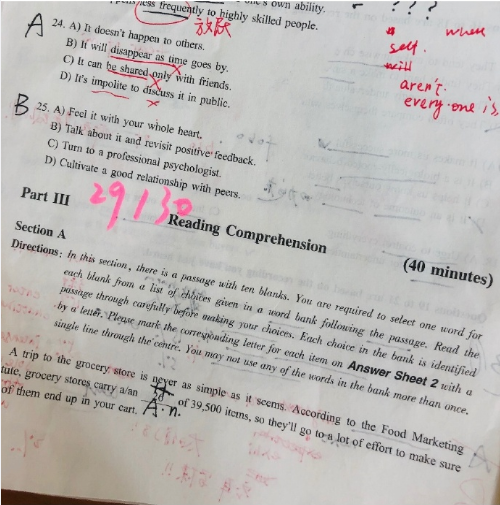 less frequently to highly skilled people.
's own ability.
? ? ?
A 24. A) It doesn't happen to others.
B) It will disappear as time goes by.
C) It can be shared only with friends.
D) It's impolite to discuss it in public.
when
self.
will
aren't.
every one is
B 25. A) Feel it with your whole heart.
B) Talk about it and revisit positive feedback.
C) Turn to a professional psychologist.
D) Cultivate a good relationship with peers.
29/30
Part III Reading Comprehension (40 minutes)
Section A
Directions: In this section, there is a passage with ten blanks. You are required to select one word for
each blank from a list of choices given in a word bank following the passage. Read the
passage through carefully before making your choices. Each choice in the bank is identified
by a letter. Please mark the corresponding letter for each item on Answer Sheet 2 with a
single line through the centre. You may not use any of the words in the bank more than once.
A trip to the grocery store is never as simple as it seems. According to the Food Marketing
tute, grocery stores carry a/an of 39,500 items, so they'll go to a lot of effort to make sure
of them end up in your cart. A. n.